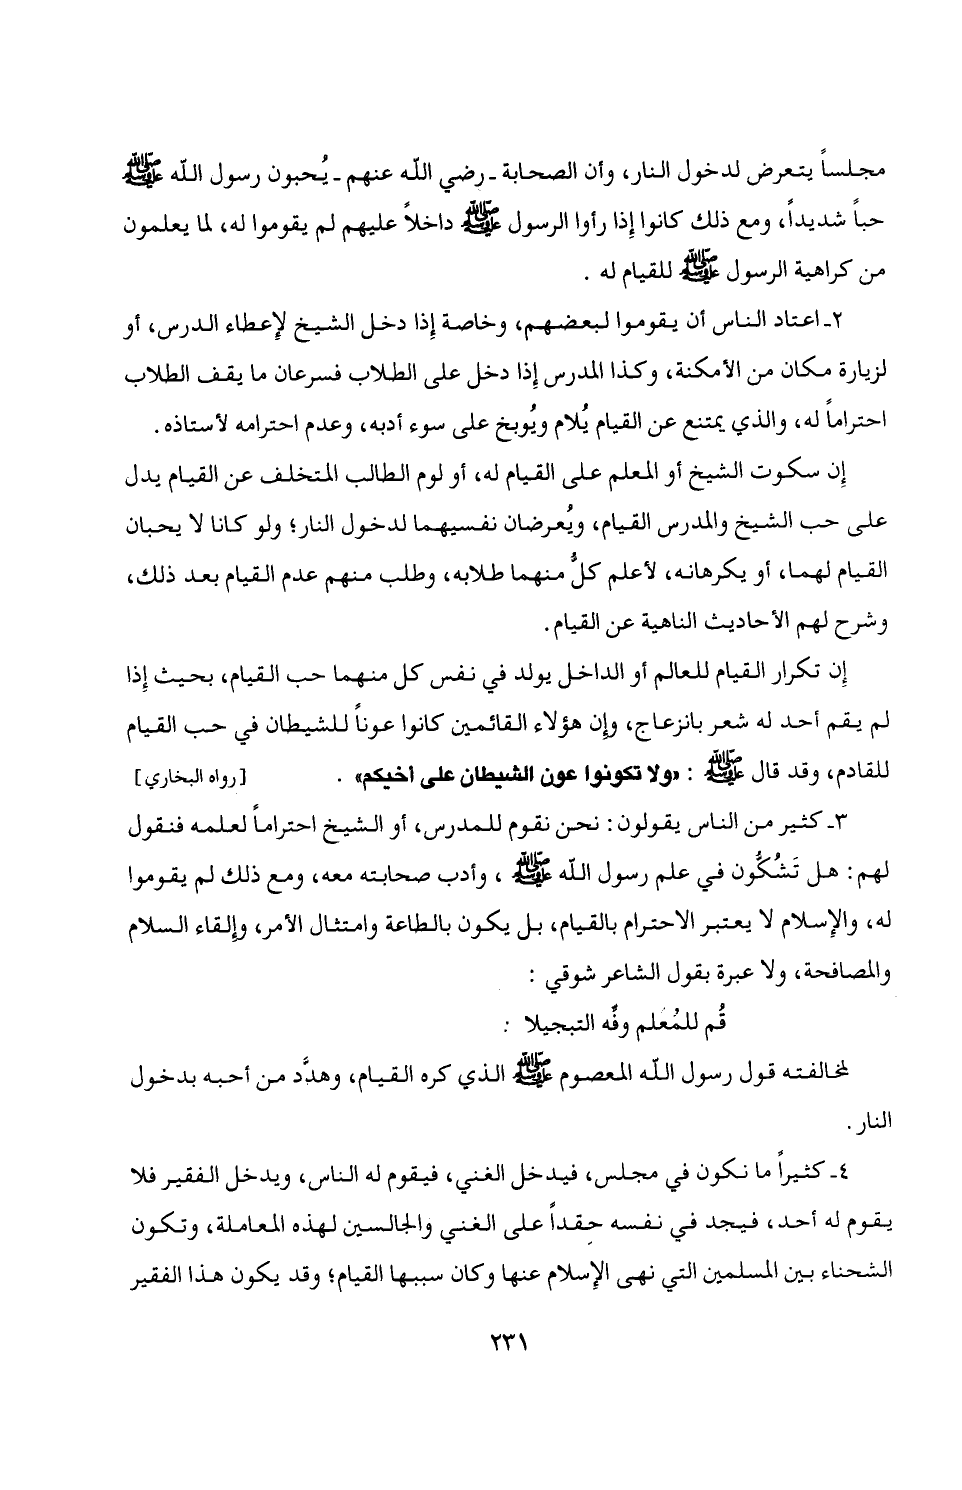 مجلساً يتعرض لدخول النار، وأن الصحابة ـ رضي الله عنهم ـ يُحبون رسول الله ﷺ
حباً شديداً، ومع ذلك كانوا إذا رأوا الرسول ﷺ داخلاً عليهم لم يقوموا له، لما يعلمون
من كراهية الرسول ﷺ للقيام له .
٢ـ اعتاد الناس أن يقوموا لبعضهم، وخاصة إذا دخل الشيخ لإعطاء الدرس، أو
لزيارة مكان من الأمكنة، وكذا المدرس إذا دخل على الطلاب فسرعان ما يقف الطلاب
احتراماً له، والذي يمتنع عن القيام يُلام ويُوبخ على سوء أدبه، وعدم احترامه لأستاذه.
إن سكوت الشيخ أو المعلم على القيام له، أو لوم الطالب المتخلف عن القيام يدل
على حب الشيخ والمدرس القيام، ويُعرضان نفسيهما لدخول النار؛ ولو كانا لا يحبان
القيام لهما، أو يكرهانه، لأعلم كلٌّ منهما طلابه، وطلب منهم عدم القيام بعد ذلك،
وشرح لهم الأحاديث الناهية عن القيام.
إن تكرار القيام للعالم أو الداخل يولد في نفس كل منهما حب القيام، بحيث إذا
لم يقم أحد له شعر بانزعاج، وإن هؤلاء القائمين كانوا عوناً للشيطان في حب القيام
للقادم، وقد قال ﷺ : «ولا تكونوا عون الشيطان على أخيكم» . [رواه البخاري]
٣ـ كثير من الناس يقولون: نحن نقوم للمدرس، أو الشيخ احتراماً لعلمه فنقول
لهم: هل تَشُكُّون في علم رسول الله ﷺ ، وأدب صحابته معه، ومع ذلك لم يقوموا
له، والإسلام لا يعتبر الاحترام بالقيام، بل يكون بالطاعة وامتثال الأمر، وإلقاء السلام
والمصافحة، ولا عبرة بقول الشاعر شوقي :
قُم للمُعَلم وفِّه التبجيلا :
لمخالفته قول رسول الله المعصوم ﷺ الذي كره القيام، وهدَّد من أحبه بدخول
النار .
٤ـ كثيراً ما نكون في مجلس، فيدخل الغني، فيقوم له الناس، ويدخل الفقير فلا
يقوم له أحد، فيجد في نفسه حقداً على الغني والجالسين لهذه المعاملة، وتكون
الشحناء بين المسلمين التي نهى الإسلام عنها وكان سببها القيام؛ وقد يكون هذا الفقير
٢٣١